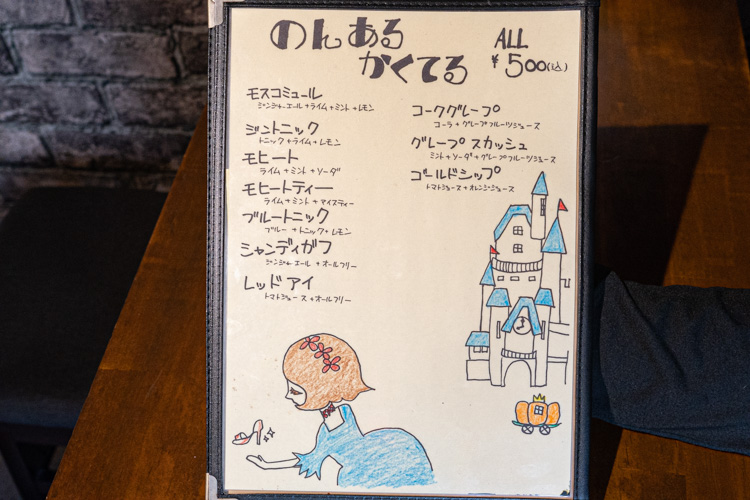 のんある
かくてる
ALL
¥500(込)
モスコミュール
ジンジャーエール+ライム+ミント+レモン
ジントニック
トニック+ライム+レモン
モヒート
ライム+ミント+ソーダ
モヒートティー
ライム+ミント+アイスティー
ブルートニック
ブルー+トニック+レモン
シャンディガフ
ジンジャーエール+オールフリー
レッドアイ
トマトジュース+オールフリー
コークグレープ
コーラ+グレープフルーツジュース
グレープスカッシュ
ミント+ソーダ+グレープフルーツジュース
ゴールドシップ
トマトジュース+オレンジジュース